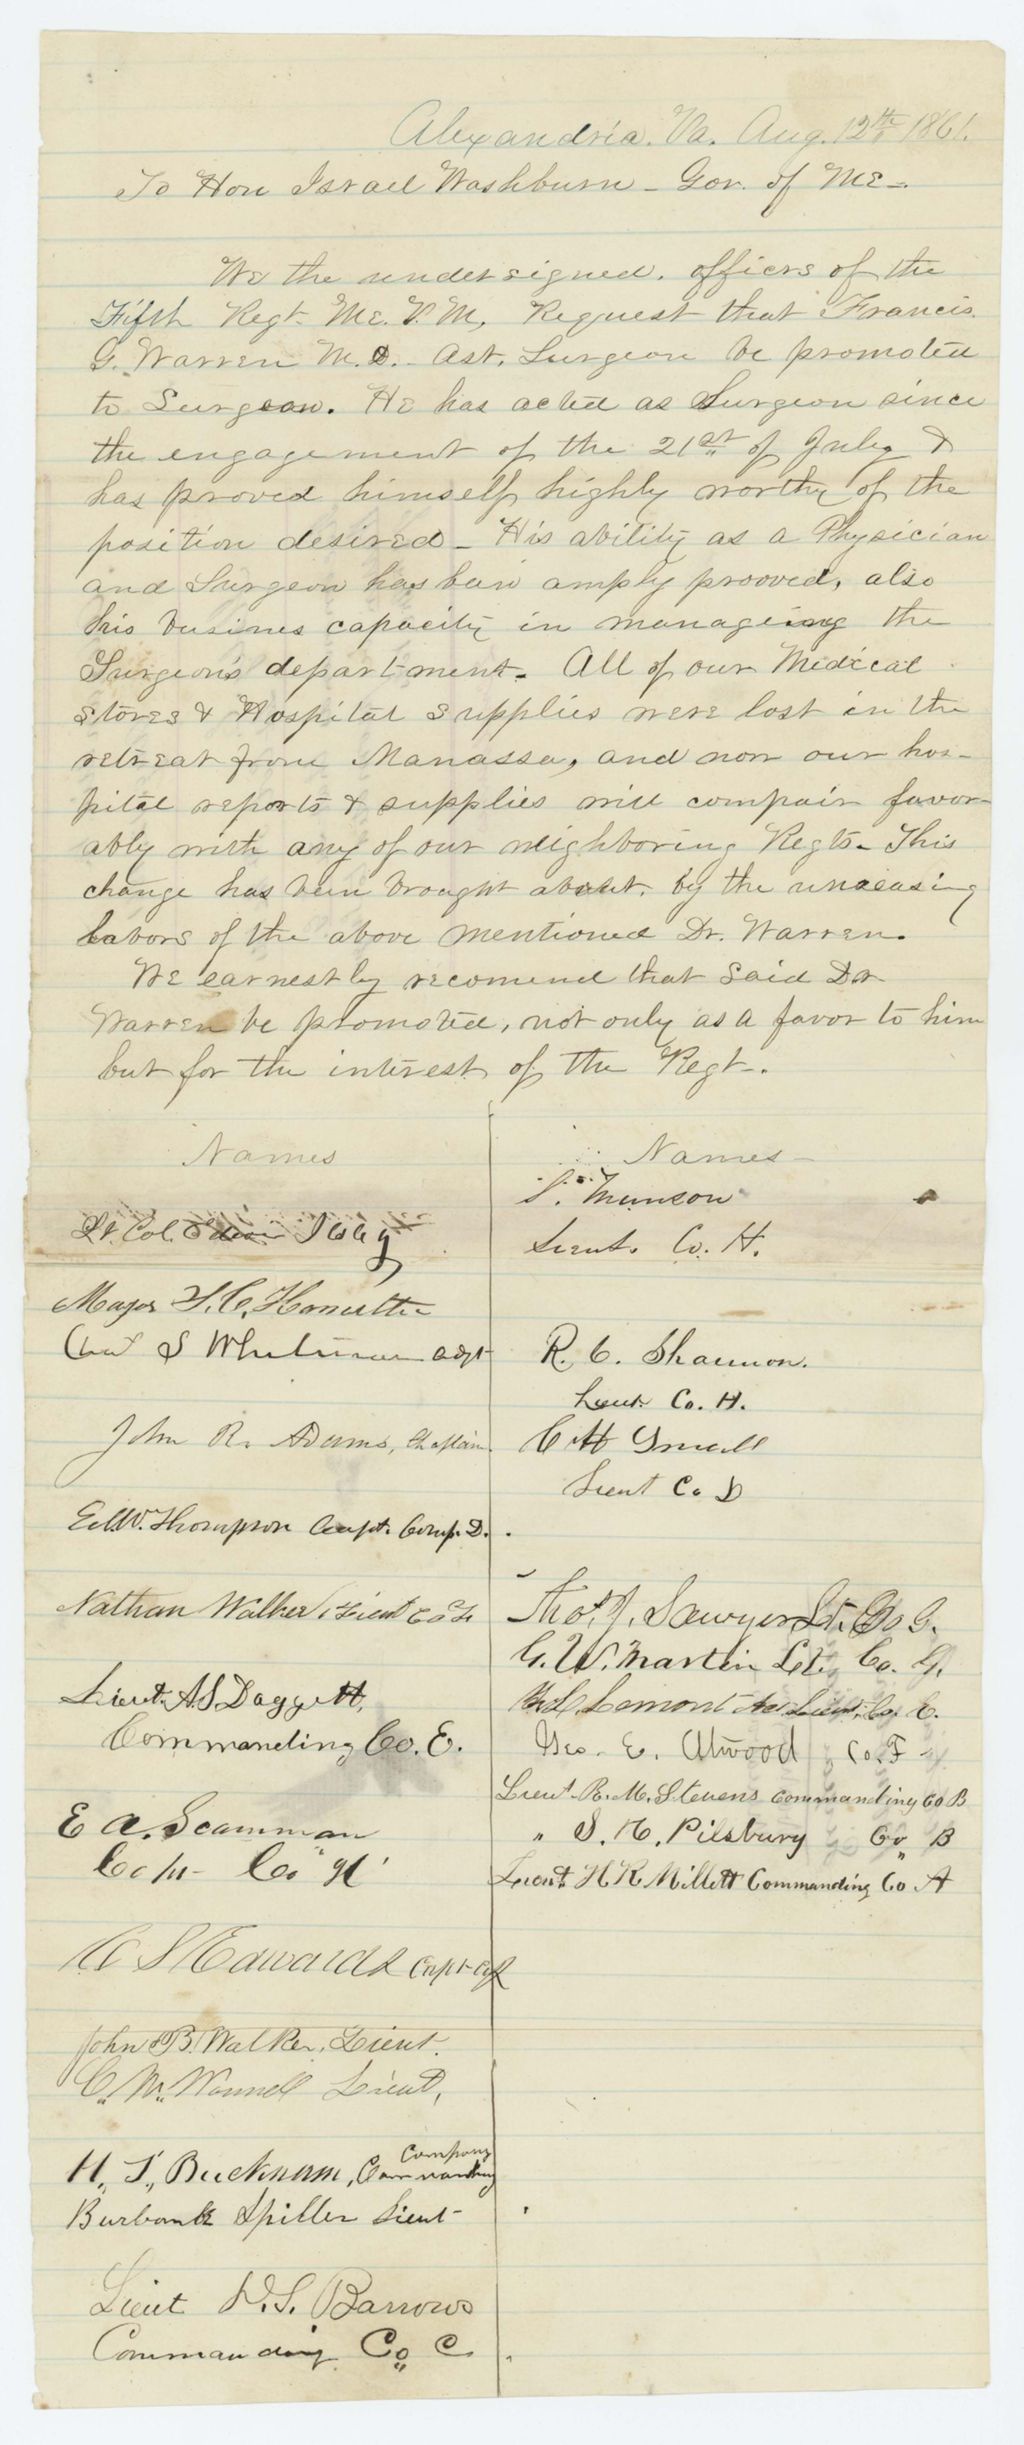 Alexandria. Va. Aug. 12th 1861.
To Hon Israel Washburn - Gov. of ME -
We the undersigned. officers of the
Fifth Regt. ME. V. M, Request that Francis
G. Warren M.D. Ast. Surgeon be promoted
to Surgeon. He has acted as Surgeon since
the engagement of the 21st of July &
has proved himself highly worthy of the
position desired - His ability as a Physician
and Surgeon has been amply prooved, also
his busines capacity in manageing the
Surgeon's department. All of our Medical
stores & Hospital supplies were lost in the
retreat from Manassa, and now our hos-
pital reports & supplies will compair favor-
ably with any of our neighboring Regts. This
change has been brought about. by the unceasing
labors of the above mentioned Dr. Warren.
We earnestly recomend that said Dr
Warren be promoted, not only as a favor to him
but for the interest of the Regt.
Names
Lt. Col. Edwin Illsley
Major S. C. Hamilton
Chas S Whitman adjt
John R. Adams, Chaplain.
Edw. Thompson Capt. Comp. D.
Nathan Walker, Lieut Co F
Lieut. A. S. Daggett,
Commanding Co. E.
E A. Scamman
Capt - Co "H"
C S Edwards Capt Co I
John B. Walker, Lieut.
C. M. Wormell Lieut,
H. T. Bucknam, Commanding Company
Burbank Spiller Lieut -
Lieut N. S. Barrows
Commanding Co C
Names -
S. Munson
Lieut. Co. H.
R. C. Shannon.
Lieut. Co. H.
C H Small
Lieut Co D
Thos. J. Sawyer Lt. Co G.
G. W. Martin Lt. Co. G.
F. L. Lemont Lieut. Co. E.
Geo. E. Atwood Co. F -
Lieut R. M. Stevens commanding Co B
" S. H. Pilsbury Co, B
Lieut. H R Millett Commanding Co A